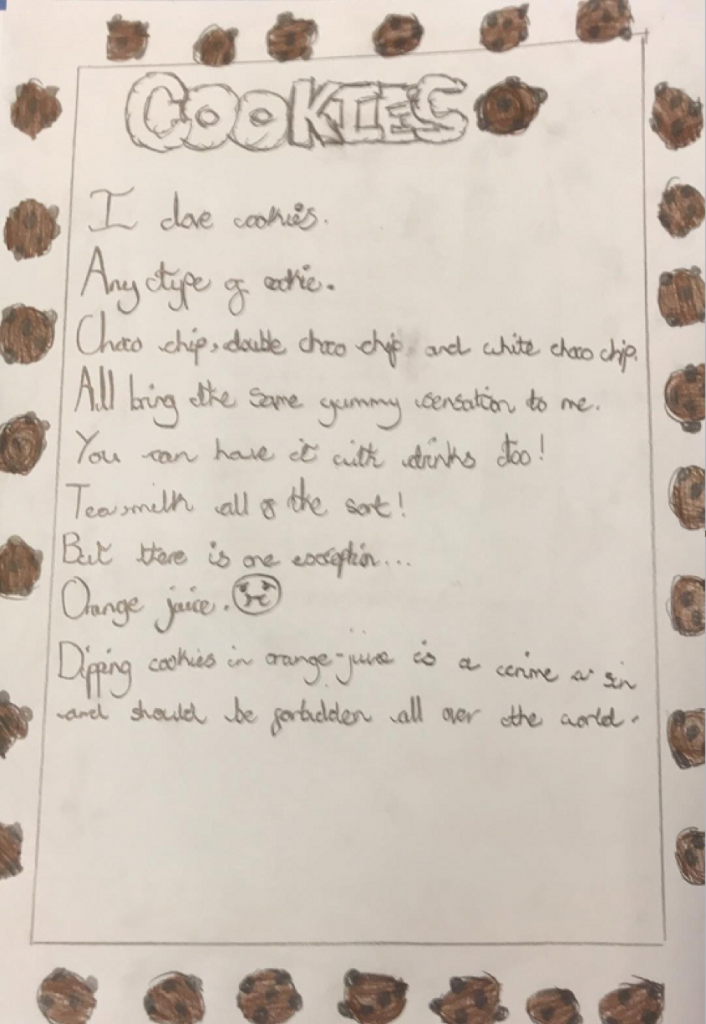 COOKIES
I love cookies.
Any type of cookie.
Choco chip, double choco chip, and white choco chip.
All bring the same yummy sensation to me.
You can have it with drinks too!
Tea, milk all of the sort!
But there is one exception...
Orange juice.
Dipping cookies in orange-juice is a crime a sin
and should be forbidden all over the world.